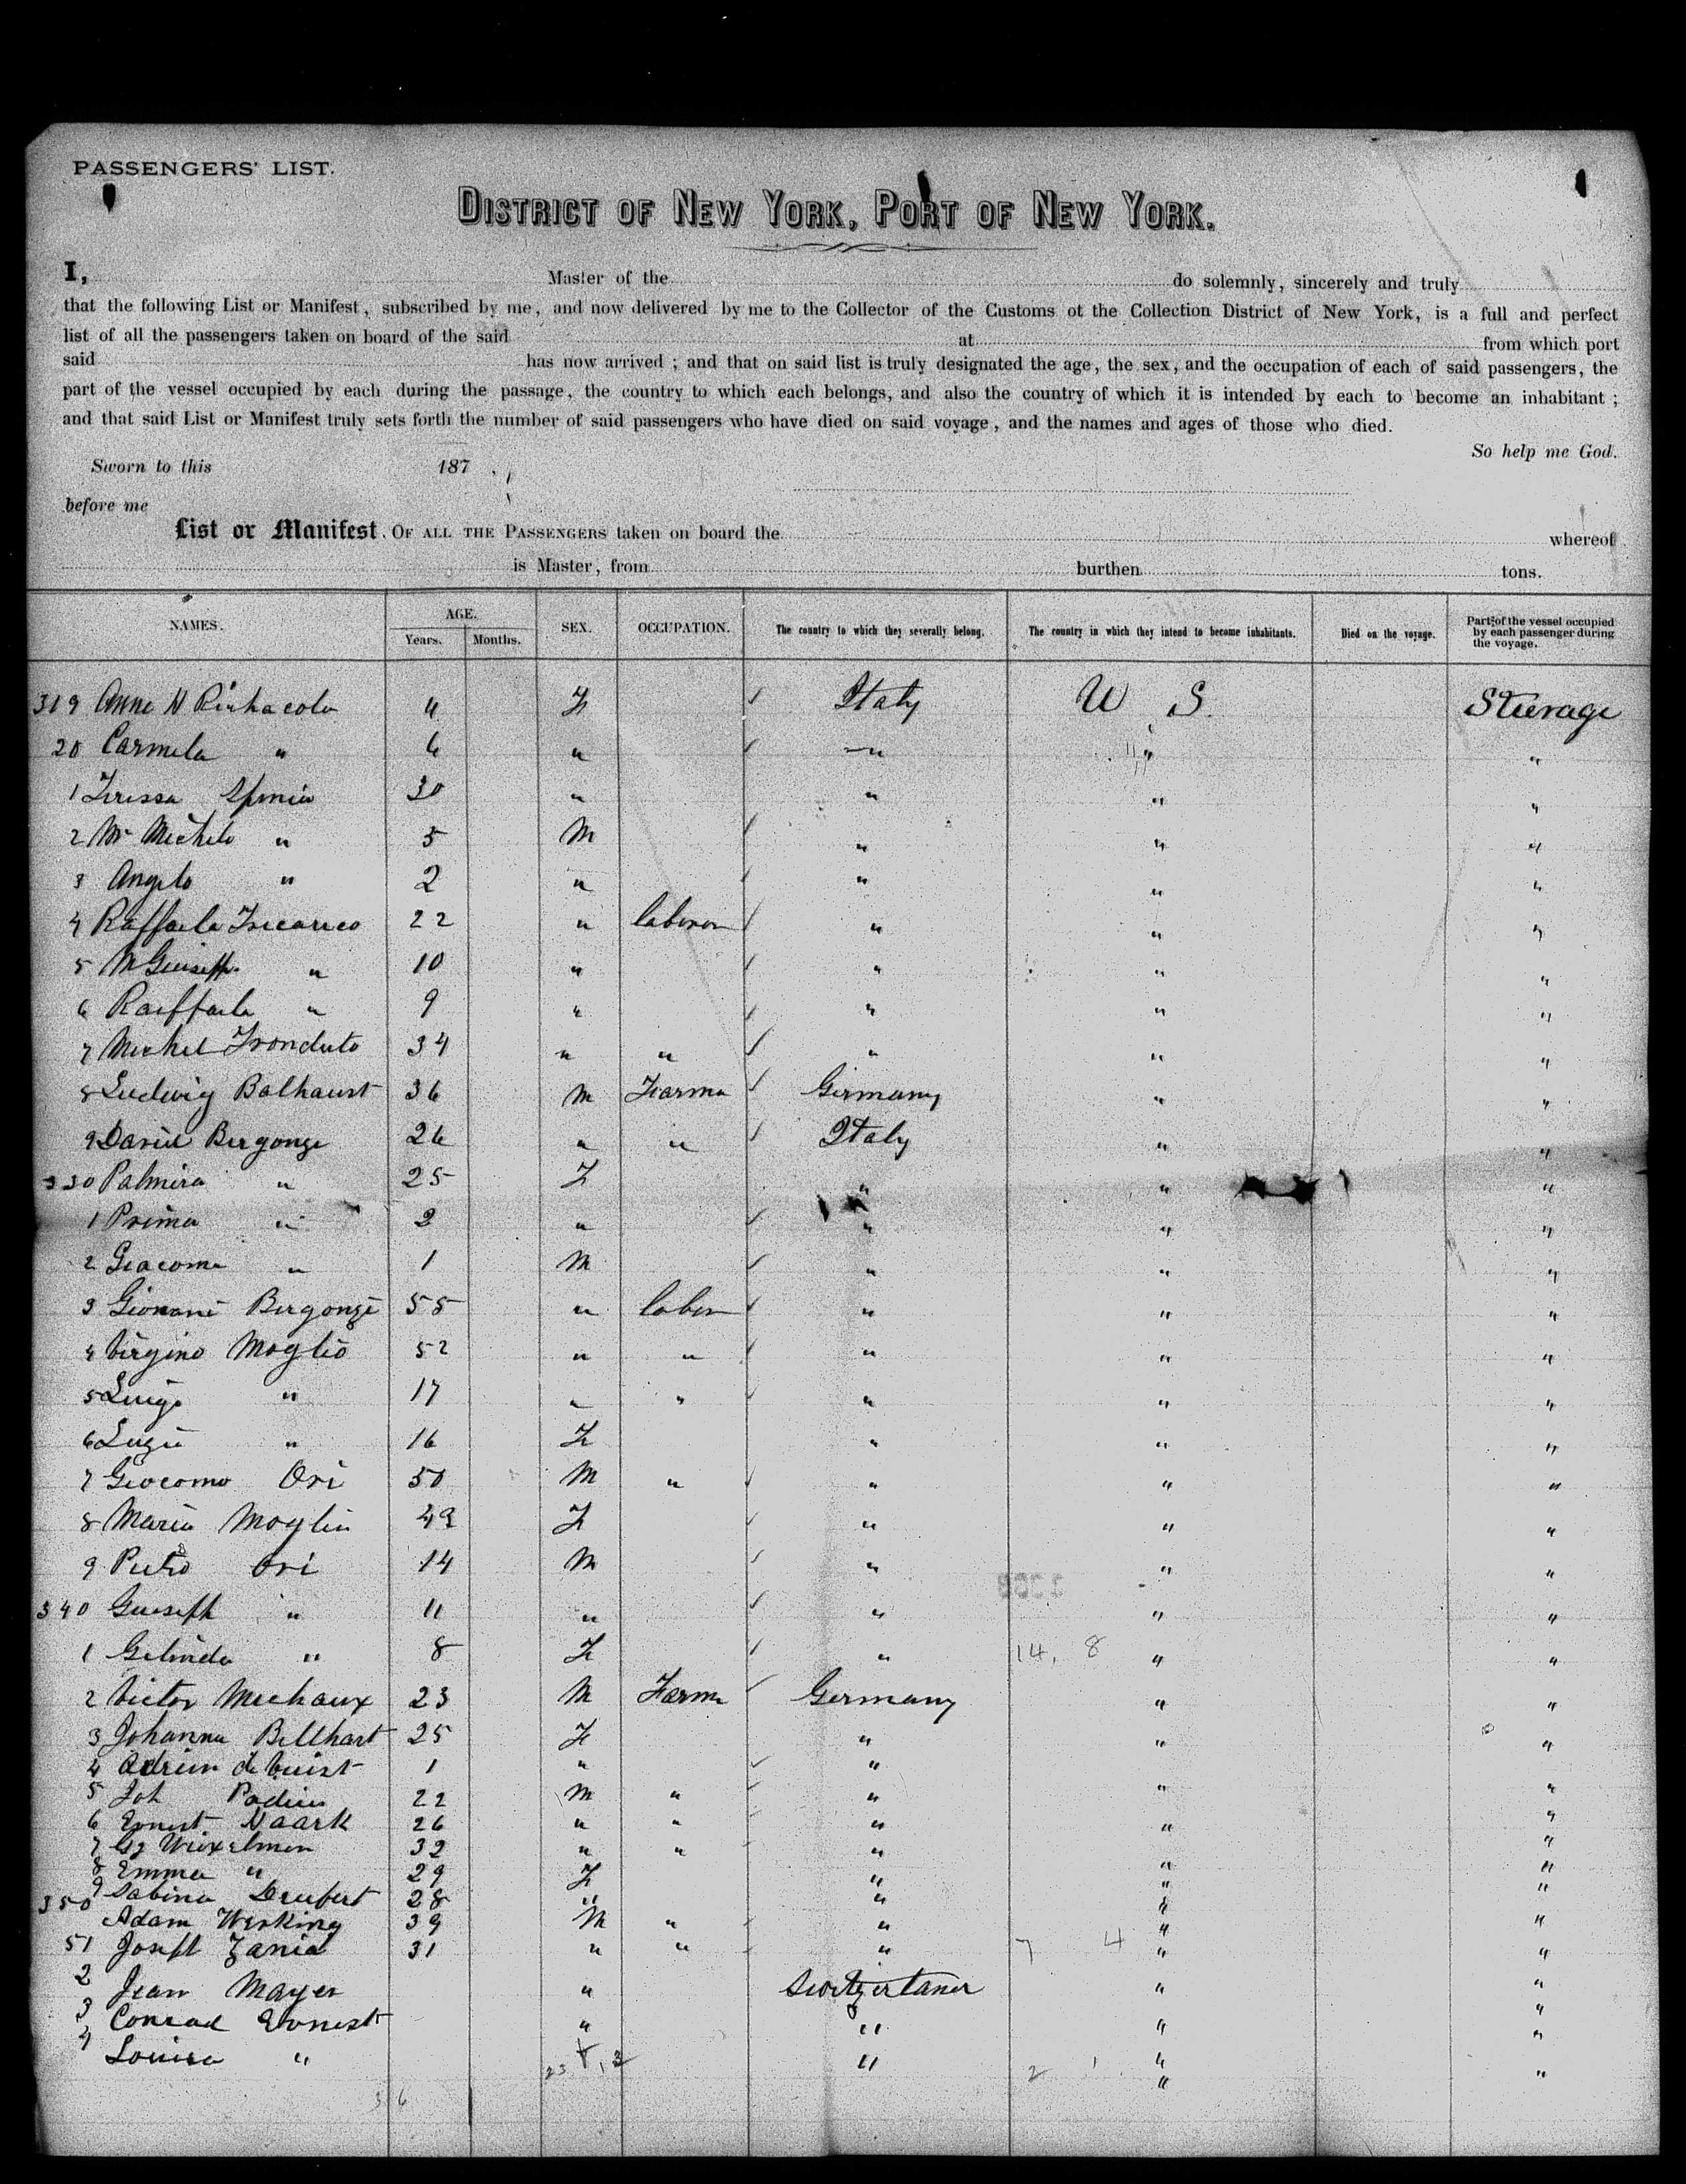 PASSENGERS' LIST.
DISTRICT OF NEW YORK, PORT OF NEW YORK.
I, Master of the do solemnly, sincerely and truly
that the following List or Manifest, subscribed by me, and now delivered by me to the Collector of the Customs ot the Collection District of New York, is a full and perfect
list of all the passengers taken on board of the said at from which port
said has now arrived ; and that on said list is truly designated the age, the sex, and the occupation of each of said passengers, the
part of the vessel occupied by each during the passage, the country to which each belongs, and also the country of which it is intended by each to become an inhabitant ;
and that said List or Manifest truly sets forth the number of said passengers who have died on said voyage, and the names and ages of those who died.
So help me God.
Sworn to this 187 ,
before me
List or Manifest. OF ALL THE PASSENGERS taken on board the whereof
is Master, from burthen tons.
NAMES. AGE. Years. Months. SEX. OCCUPATION. The country to which they severally belong. The country in which they intend to become inhabitants. Died on the voyage. Part of the vessel occupied by each passenger during the voyage.
319 Anne N 4 F Italy U S. Steerage
20 Carmela " 6 " " " "
1 Teressa 30 " " " "
2 Mr Michele " 5 M " " "
3 Angelo " 2 " " " "
4 Raffaele Tricarico 22 " laborer " " "
5 M Giusepp. " 10 " " " "
6 Raiffaele " 9 " " " "
7 Michel Tronduto 34 " " " " "
8 Ludwig Balhaust 36 M Farma Germany " "
9 David Bergonzi 26 " " Italy " "
330 Palmira " 25 F " " "
1 Prima " 2 " " " "
2 Giacomo " 1 M " " "
3 Giovani Bergonzi 55 " labor " " "
4 Virgino Moglio 52 " " " " "
5 Luigi " 17 " " " " "
6 " 16 F " " "
7 Giocomo Ori 50 M " " " "
8 Maria Moglia F " " "
9 Pietro Ori 14 M " " "
340 Giuseph " 11 " " " "
1 Gelinda " 8 F " 14, 8 " "
2 Victor Michaux 23 M Farm Germany " "
3 Johanna Bellhart 25 F " " "
4 Adrien de 1 " " " "
5 Joh 22 M " " " "
6 Ernest Naark 26 " " " " "
7 32 " " " " "
8 Emma " 29 F " " "
9 Sabina 28 " " " "
350 Adam Werking 39 M " " " "
51 Joseph Zania 31 " " " 7 4 " "
2 Jean Mayer " " "
3 Conrad Ernest " " " "
4 Louisa " " 2 1 " "